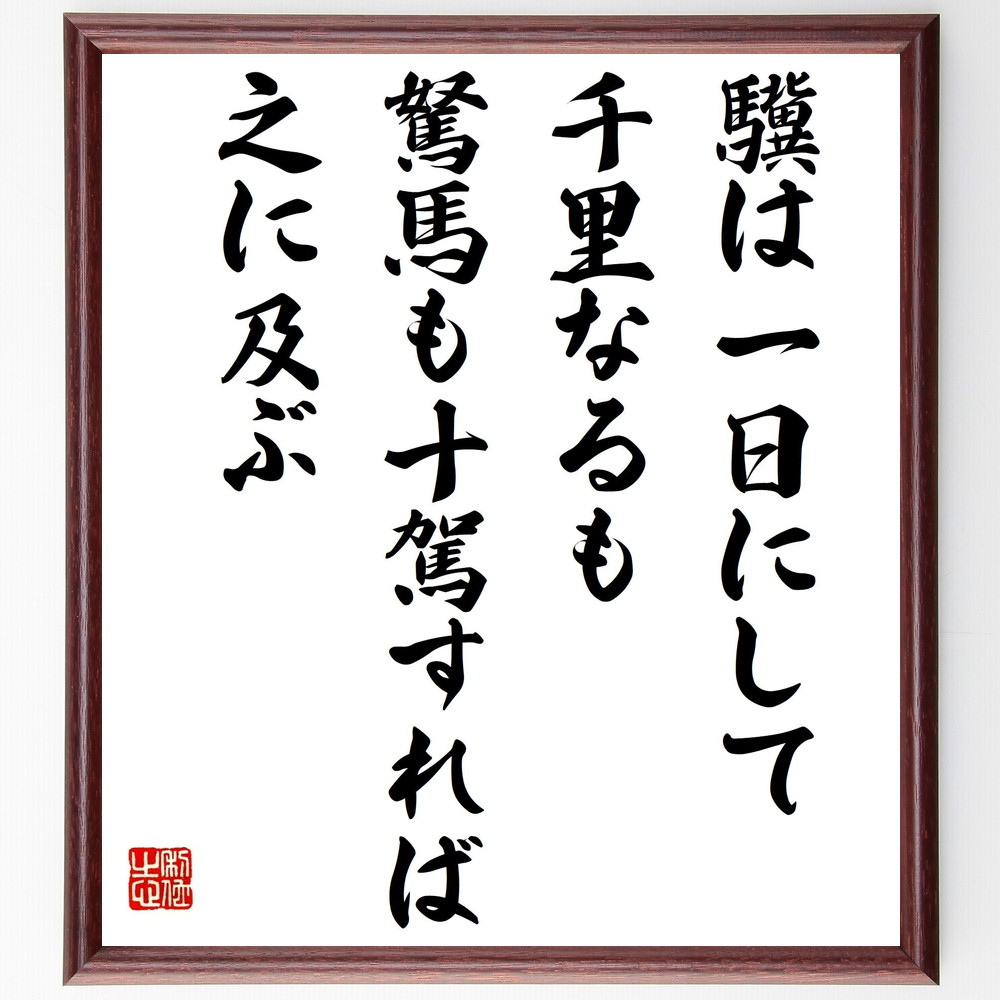 驥は一日にして
千里なるも
駑馬も十駕すれば
之に及ぶ